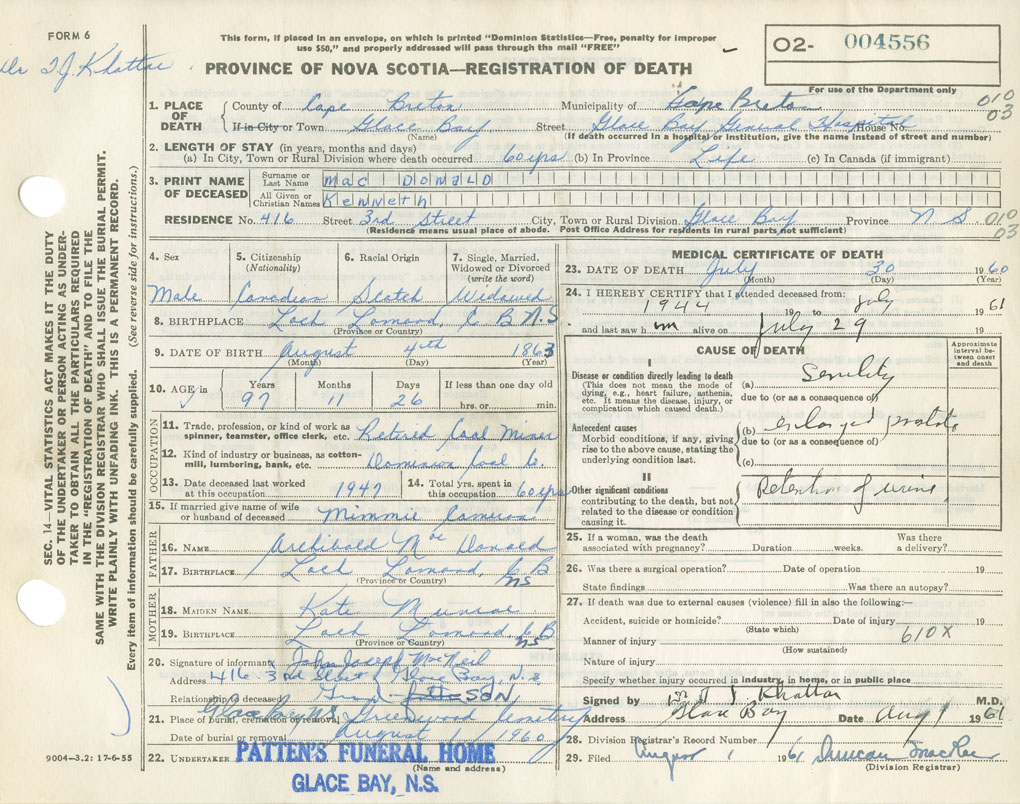 FORM 6
This form, if placed in an envelope, on which is printed "Dominion Statistics—Free, penalty for improper
use $50," and properly addressed will pass through the mail "FREE"
Dr T. J. Khattar
PROVINCE OF NOVA SCOTIA—REGISTRATION OF DEATH
O2- 004556
For use of the Department only
010
03
1. PLACE OF DEATH County of Cape Breton Municipality of Cape Breton
If in City or Town Glace Bay Street Glace Bay General Hospital House No.
(Name) (If death occurred in a hospital or institution, give the name instead of street and number)
2. LENGTH OF STAY (in years, months and days)
(a) In City, Town or Rural Division where death occurred 60 yrs (b) In Province Life (c) In Canada (if immigrant)
3. PRINT NAME OF DECEASED Surname or Last Name Mac Donald
All Given or Christian Names Kenneth
RESIDENCE No. 416 Street 3rd Street City, Town or Rural Division Glace Bay Province N S 010
03
(Residence means usual place of abode. Post Office Address for residents in rural parts not sufficient)
SEC. 14—VITAL STATISTICS ACT MAKES IT THE DUTY
OF THE UNDERTAKER OR PERSON ACTING AS UNDER-
TAKER TO OBTAIN ALL THE PARTICULARS REQUIRED
IN THE "REGISTRATION OF DEATH" AND TO FILE THE
SAME WITH THE DIVISION REGISTRAR WHO SHALL ISSUE THE BURIAL PERMIT.
WRITE PLAINLY WITH UNFADING INK. THIS IS A PERMANENT RECORD.
Every item of information should be carefully supplied. (See reverse side for instructions.)
4. Sex Male
5. Citizenship (Nationality) Canadian
6. Racial Origin Scotch
7. Single, Married, Widowed or Divorced (write the word) Widowed
8. BIRTHPLACE Loch Lomond, C B N.S
(Province or Country)
9. DATE OF BIRTH August 4th 1863
(Month) (Day) (Year)
10. AGE in Years 97 Months 11 Days 26 If less than one day old hrs. or min.
OCCUPATION
11. Trade, profession, or kind of work as spinner, teamster, office clerk, etc. Retired Coal Miner
12. Kind of industry or business, as cotton-mill, lumbering, bank, etc. Dominion Coal Co.
13. Date deceased last worked at this occupation 1947
14. Total yrs. spent in this occupation 60 yrs
15. If married give name of wife or husband of deceased Mimmie Cameron
FATHER
16. NAME Archibald Mac Donald
17. BIRTHPLACE Loch Lomond, C B NS
(Province or Country)
MOTHER
18. MAIDEN NAME Kate Munroe
19. BIRTHPLACE Loch Lomond C B NS
(Province or Country)
20. Signature of informant John Joseph MacNeil
Address 416 3rd Street Glace Bay, N.S.
Relationship to deceased Grand SON
21. Place of burial, cremation or removal Glace Bay NS Greenwood Cemetery
Date of burial or removal August 1 1960
22. UNDERTAKER PATTEN'S FUNERAL HOME
(Name and address)
GLACE BAY, N.S.
9004—3.2: 17-6-55
MEDICAL CERTIFICATE OF DEATH
23. DATE OF DEATH July 30 1960
(Month) (Day) (Year)
24. I HEREBY CERTIFY that I attended deceased from:
1944 19 to July 1961
and last saw him alive on July 29 19
CAUSE OF DEATH
Approximate interval between onset and death
I
Disease or condition directly leading to death
(This does not mean the mode of
dying, e.g., heart failure, asthenia,
etc. It means the disease, injury, or
complication which caused death.)
(a) Senility
due to (or as a consequence of)
Antecedent causes
Morbid conditions, if any, giving
rise to the above cause, stating the
underlying condition last.
(b) enlarged prostate
due to (or as a consequence of)
(c)
II
Other significant conditions
contributing to the death, but not
related to the disease or condition
causing it.
Retention of urine
25. If a woman, was the death associated with pregnancy? Duration weeks. Was there a delivery?
26. Was there a surgical operation? Date of operation 19
State findings Was there an autopsy?
27. If death was due to external causes (violence) fill in also the following:—
Accident, suicide or homicide? Date of injury 19
(State which) 610X
Manner of injury
(How sustained)
Nature of injury
Specify whether injury occurred in industry, in home, or in public place
Signed by Dr T J Khattar M.D.
Address Glace Bay Date Aug 1 1961
28. Division Registrar's Record Number
29. Filed August 1 1961 Duncan MacRae
(Division Registrar)